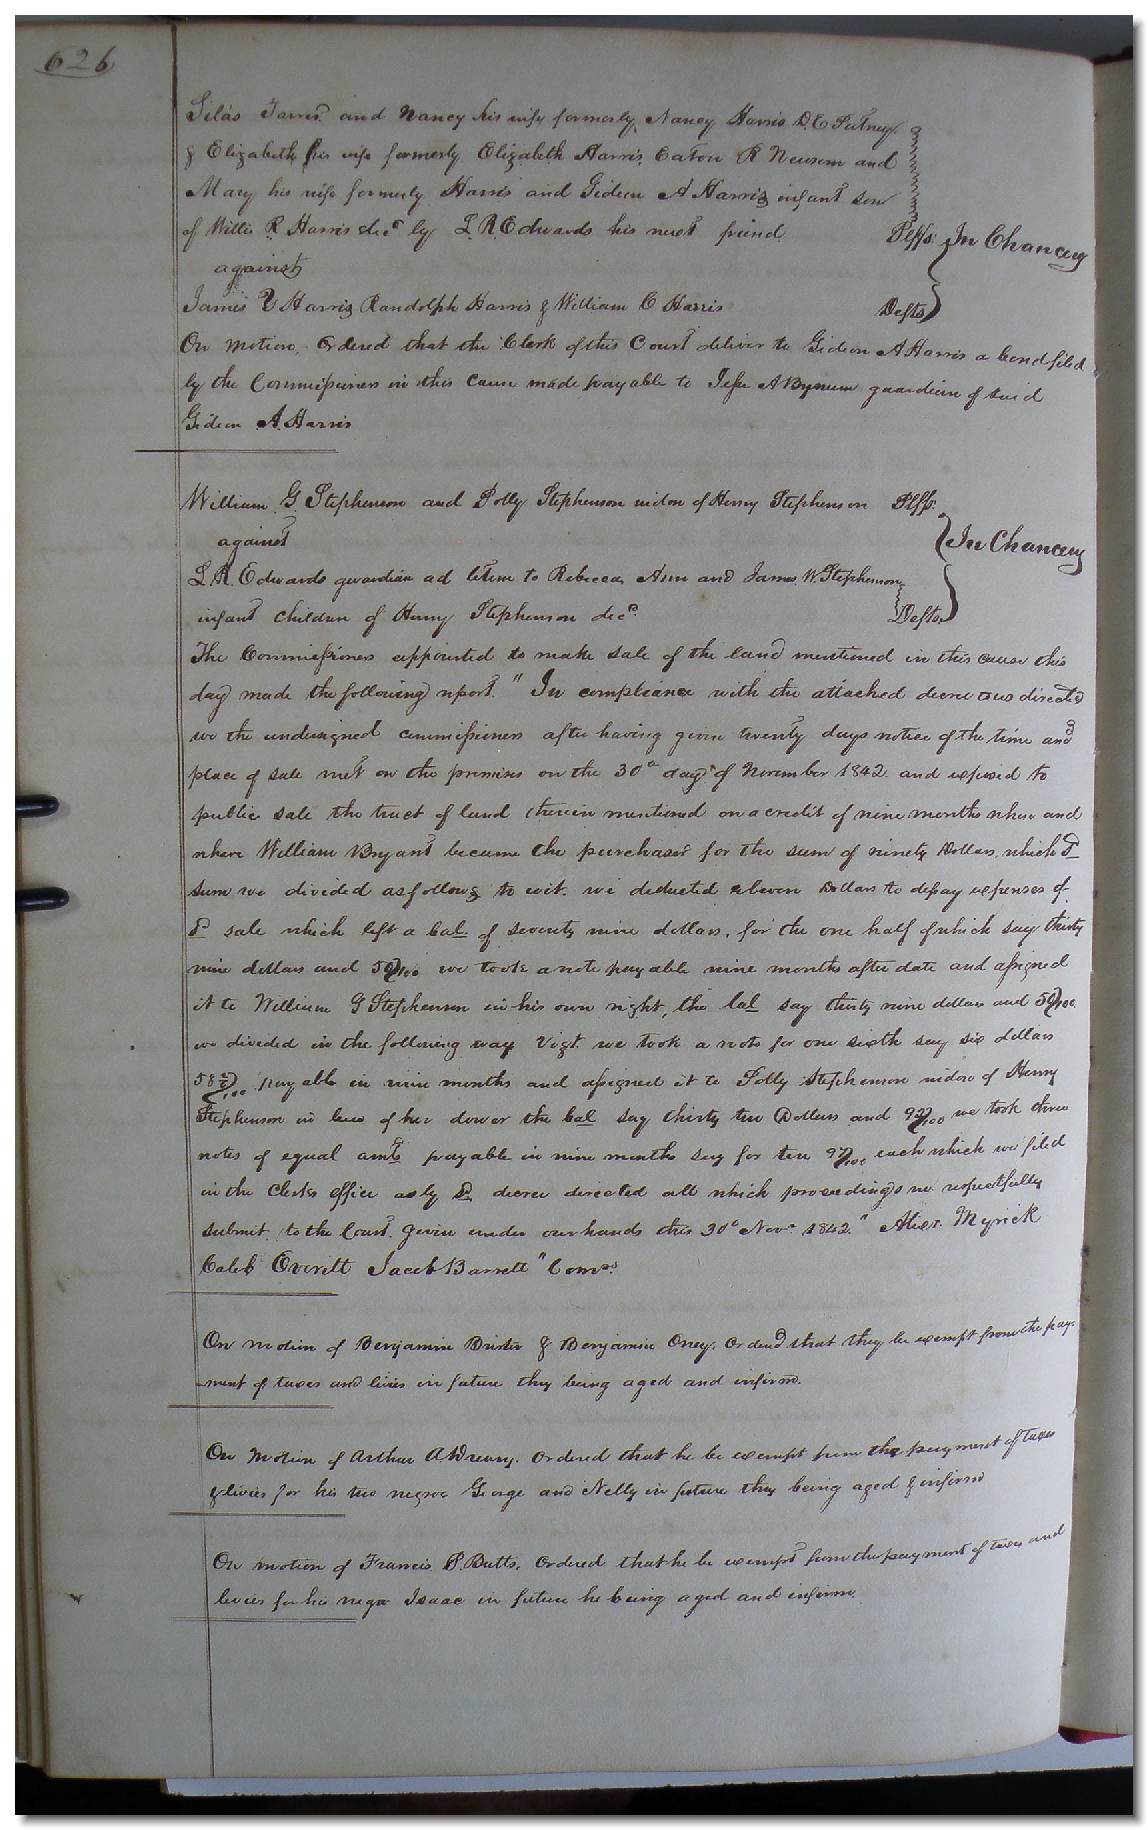 626
Silas and Nancy his wife formerly Nancy Harris D. C. Putney
& Elizabeth his wife formerly Elizabeth Harris Eaton R Newsom and
Mary his wife formerly Harris and Gideon A Harris infant son
of Willis R. Harris decd by L. R. Edwards his next friend Plffs In Chancery
against
James Y Harris Randolph Harris & William C Harris Defts
On motion. Ordered that the Clerk of this Court deliver to Gideon A Harris a bond filed
by the Commissioners in this cause made payable to Jesse A Bynum guardian of said
Gideon A. Harris
William G. Stephenson and Polly Stephenson widow of Henry Stephenson Plffs.
against In Chancery
L. R. Edwards guardian ad litem to Rebecca Ann and James W. Stephenson
infant children of Henry Stephenson decd. Defts
The Commissioners appointed to make sale of the land mentioned in this cause this
day made the following report. "In compliance with the attached decree as directed
we the undersigned commissioners after having given twenty days notice of the time and
place of sale met on the premises on the 30th day of November 1842 and exposed to
public sale the tract of land therein mentioned on a credit of nine months when and
where William Bryant became the purchaser for the sum of ninety Dollars. which sd
sum we divided as follows to wit. we deducted eleven Dollars to defray expenses of
sd sale which left a bal. of seventy nine dollars, for the one half of which say thirty
nine dollars and 50/100 we took a note payable nine months after date and assigned
it to William G Stephenson in his own right, the bal say thirty nine dollars and 50/100
we divided in the following way Vizt. we took a note for one sixth say six dollars
58 /100 payable in nine months and assigned it to Polly Stephenson widow of Henry
Stephenson in lieu of her dower the bal say thirty two Dollars and 92/100 we took three
notes of equal amts payable in nine months say for ten 97/100 each which we filed
in the Clerks office as by sd decree directed all which proceedings we respectfully
submit. to the Court. given under our hands this 30th Novr 1842." Alexr. Myrick
Caleb Everitt Jacob Barrett "Comrs.
On motion of Benjamin & Benjamin Oney. Ordered that they be exempt from the pay-
-ment of taxes and levies in future they being aged and infirm.
On Motion of Arthur A Drewry. Ordered that he be exempt from the payment of taxes
& levies for his two negroe George and Nelly in future they being aged & infirm
On motion of Francis P. Butts. Ordered that he be exempt from the payment of taxes and
levies for his negro Isaac in future he being aged and infirm.